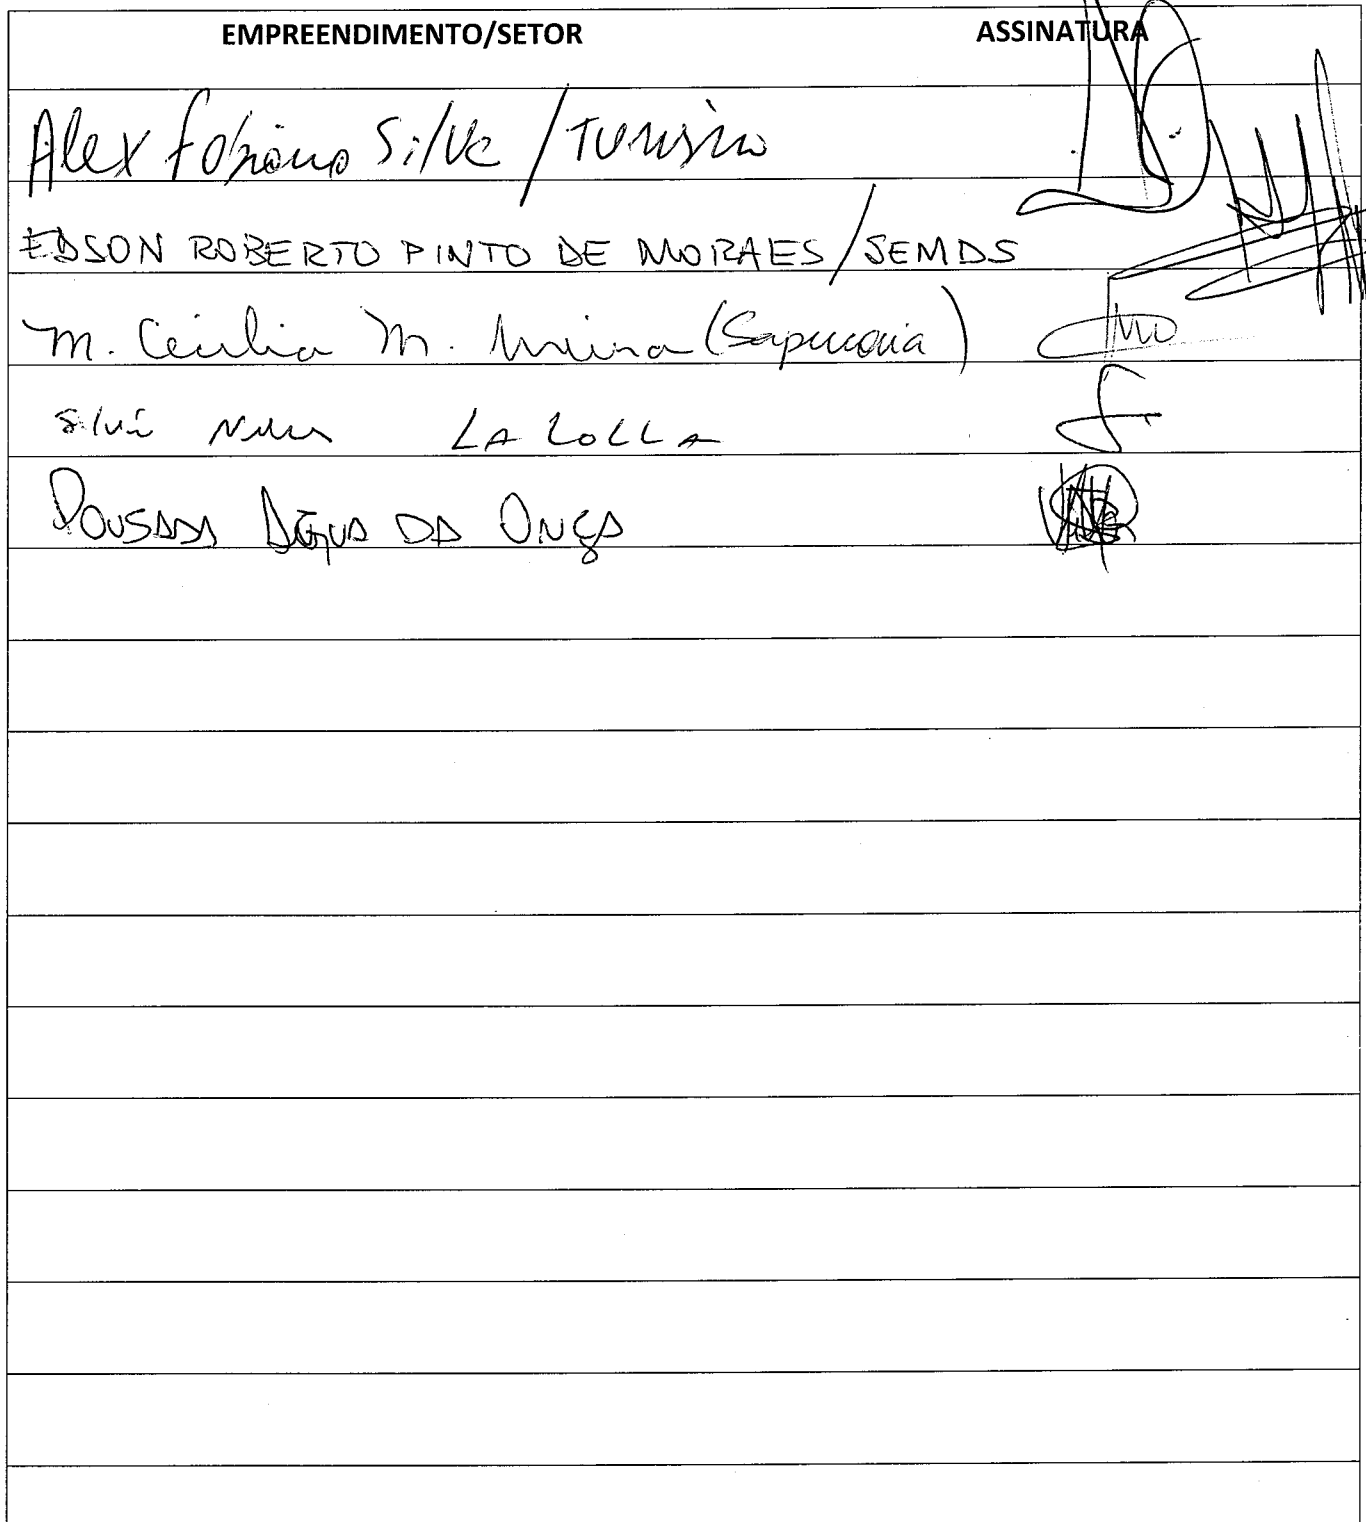 EMPREENDIMENTO/SETOR ASSINATURA
Alex Fabiano Silva / Turismo
EDSON ROBERTO PINTO DE MORAES/SEMDS
M. Cecilia M.
LA LOLLA
POUSADA ÁGUA DA ONÇA